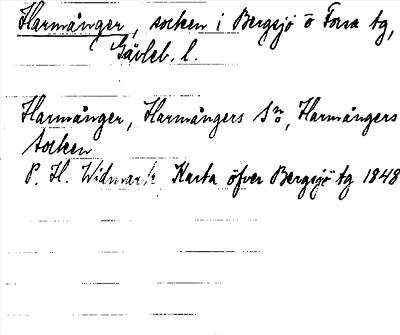 Harmånger, socken i Bergsjö o Forsa tg,
Gävleb. l.
Harmånger, Harmångers Sn, Harmångers
Socken
P. H. Widmark Karta öfver Bergsjö tg 1848